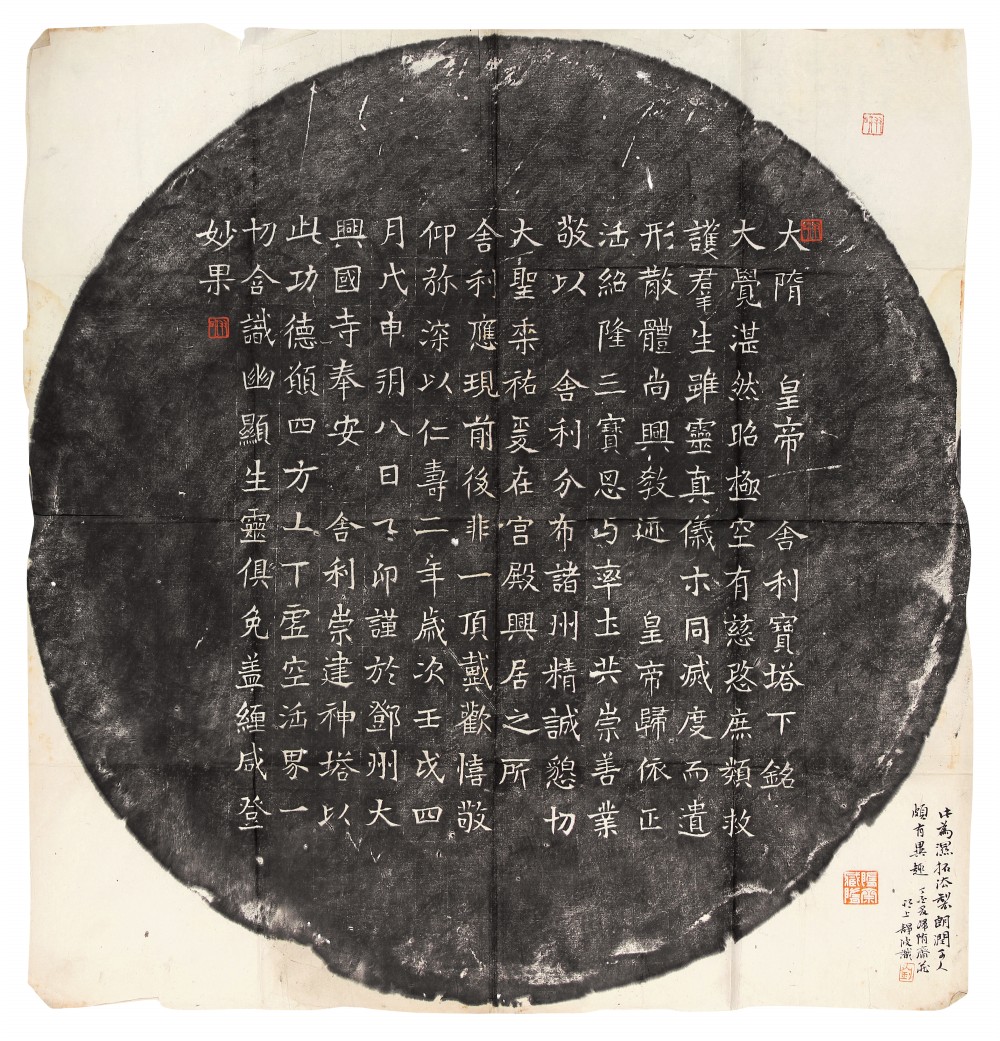 大隋 皇帝 舍利寶塔下銘
大覺湛然昭極空有慈愍庶類救
護羣生雖靈真儀亦同滅度而遺
形散體尚興敎迹 皇帝歸依正
法紹隆三寶思与率土共崇善業
敬以 舍利分布諸州精誠懇切
大聖垂祐爰在宮殿興居之所
舍利應現前後非一頂戴歡憘敬
仰弥深以仁壽二年歲次壬戌四
月戊申朔八日乙卯謹於鄧州大
興國寺奉安 舍利崇建神塔以
此功德願四方上下虛空法界一
切含識幽顯生靈俱免盖纏咸登
妙果
此爲濕拓法製朗潤可人
頗有異趣